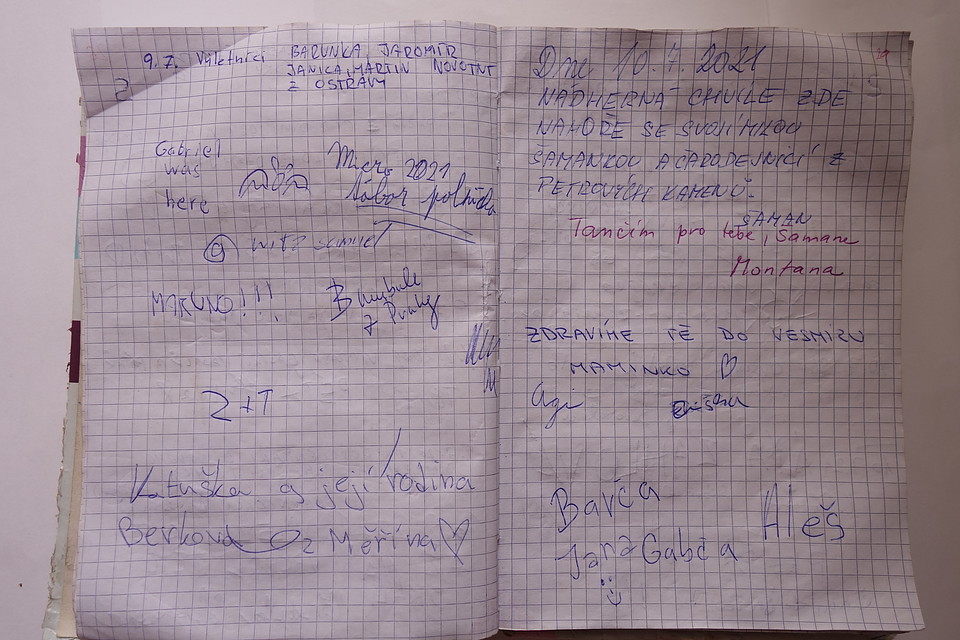 9.7. Výletníci BARUNKA, JAROMÍR
JANKA, MARTIN NOVOTNÝ
Z OSTRAVY
Gabriel
was
here
Micro 2021
tábor
MIKUNO!!!
z Prahy
Z+T
Katuška a její rodina
Berkova z Měřína
Dne 10.7.2021
NÁDHERNÁ CHVÍLE ZDE
NAHOŘE SE SVOJÍ MILOU
ŠAMANKOU A ČARODEJNICÍ Z
PETROVÝCH KAMENŮ.
ŠAMAN
Tančím pro tebe, Šamane
Montana
ZDRAVÍME TĚ DO VESMÍRU
MAMINKO
Barča
Aleš
Jára Gabča